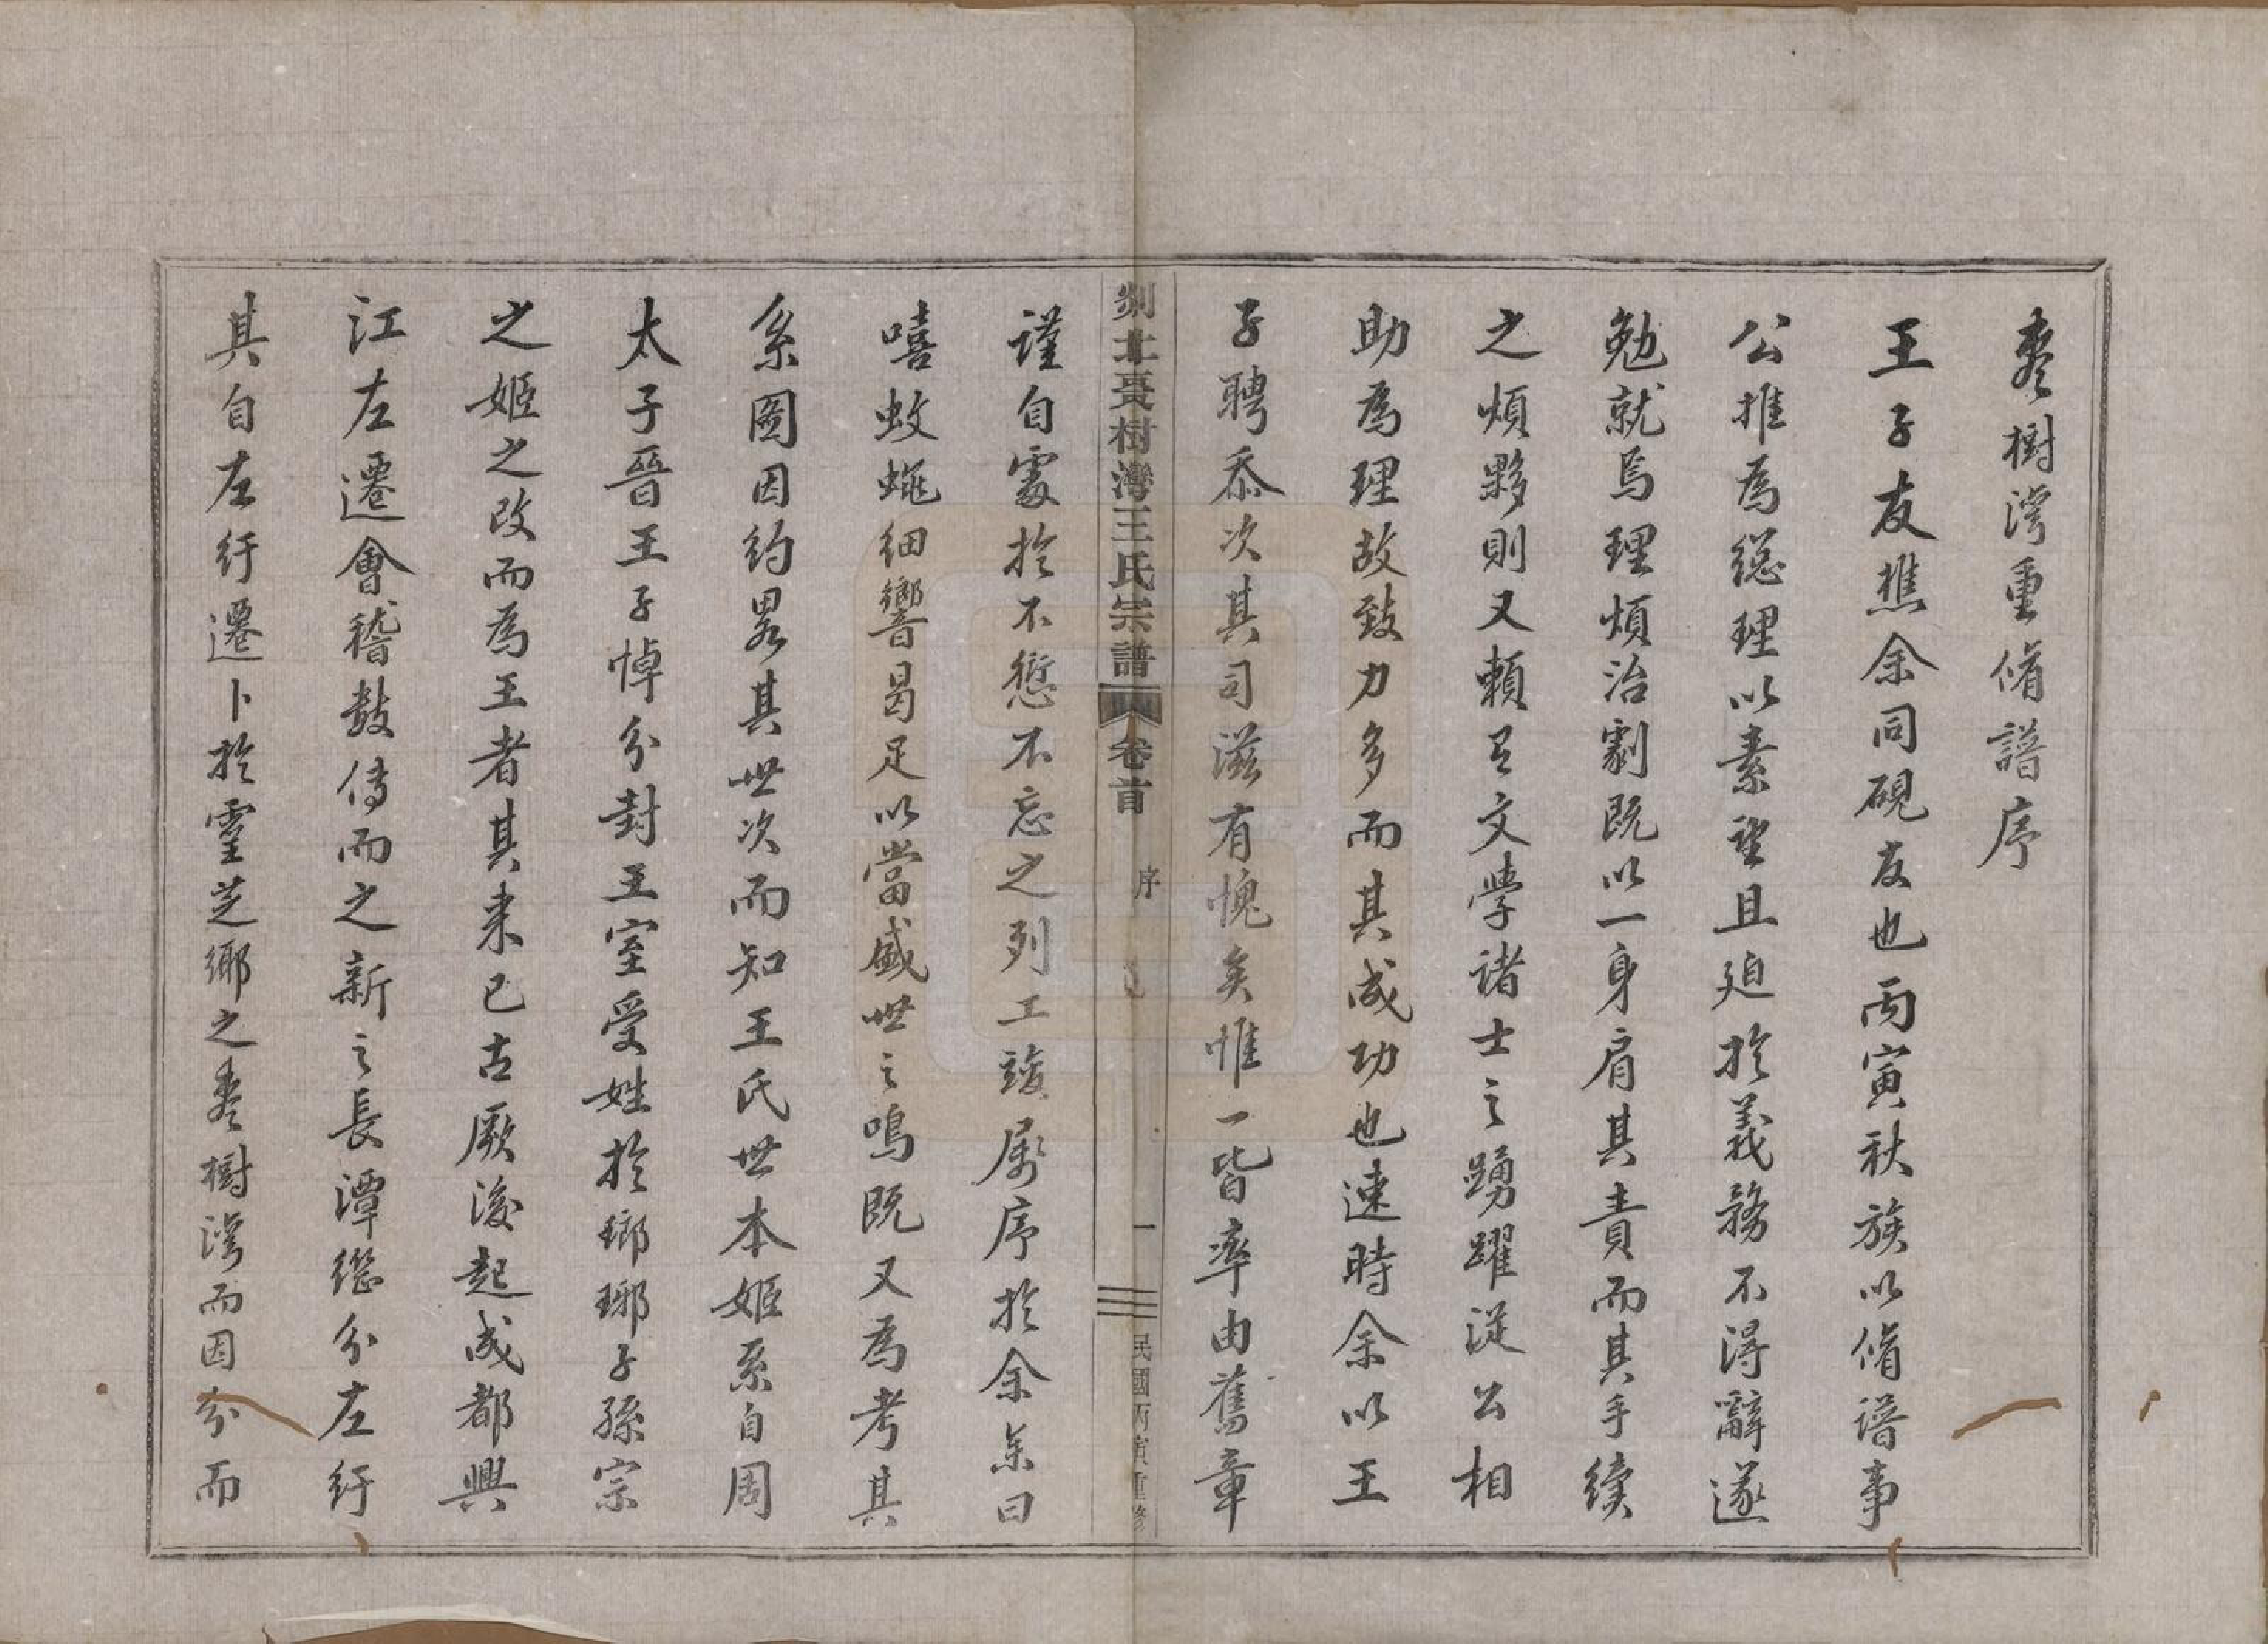 枣樹湾重脩譜序
王子友樵余同硯友也丙寅秋族以脩譜事
公推為總理以素望且廹於義務不得辭遂
勉就焉理煩治劇既以一身肩其責而其手續
之煩夥則又賴有文學諸士之踴躍從公相
助為理故致力多而其成功也速時余以王
子聘忝次其司滋有愧矣惟一皆率由舊章
剡北棗樹灣王氏宗譜 卷首 序 一 民國丙寅重修
謹自寘於不愆不忘之列工竣屬序於余余曰
嘻蚊蠅細響曷足以當盛世之鳴既又為考其
系圖因約畧其世次而知王氏世本姬系自周
太子晉王子悼分封王室受姓於瑯琊子孫宗
之姬之改而為王者其来已古厥後起成都興
江左遷會稽数傳而之新之長潭継分左行
其自左行遷卜於靈芝鄉之枣樹湾而因分而